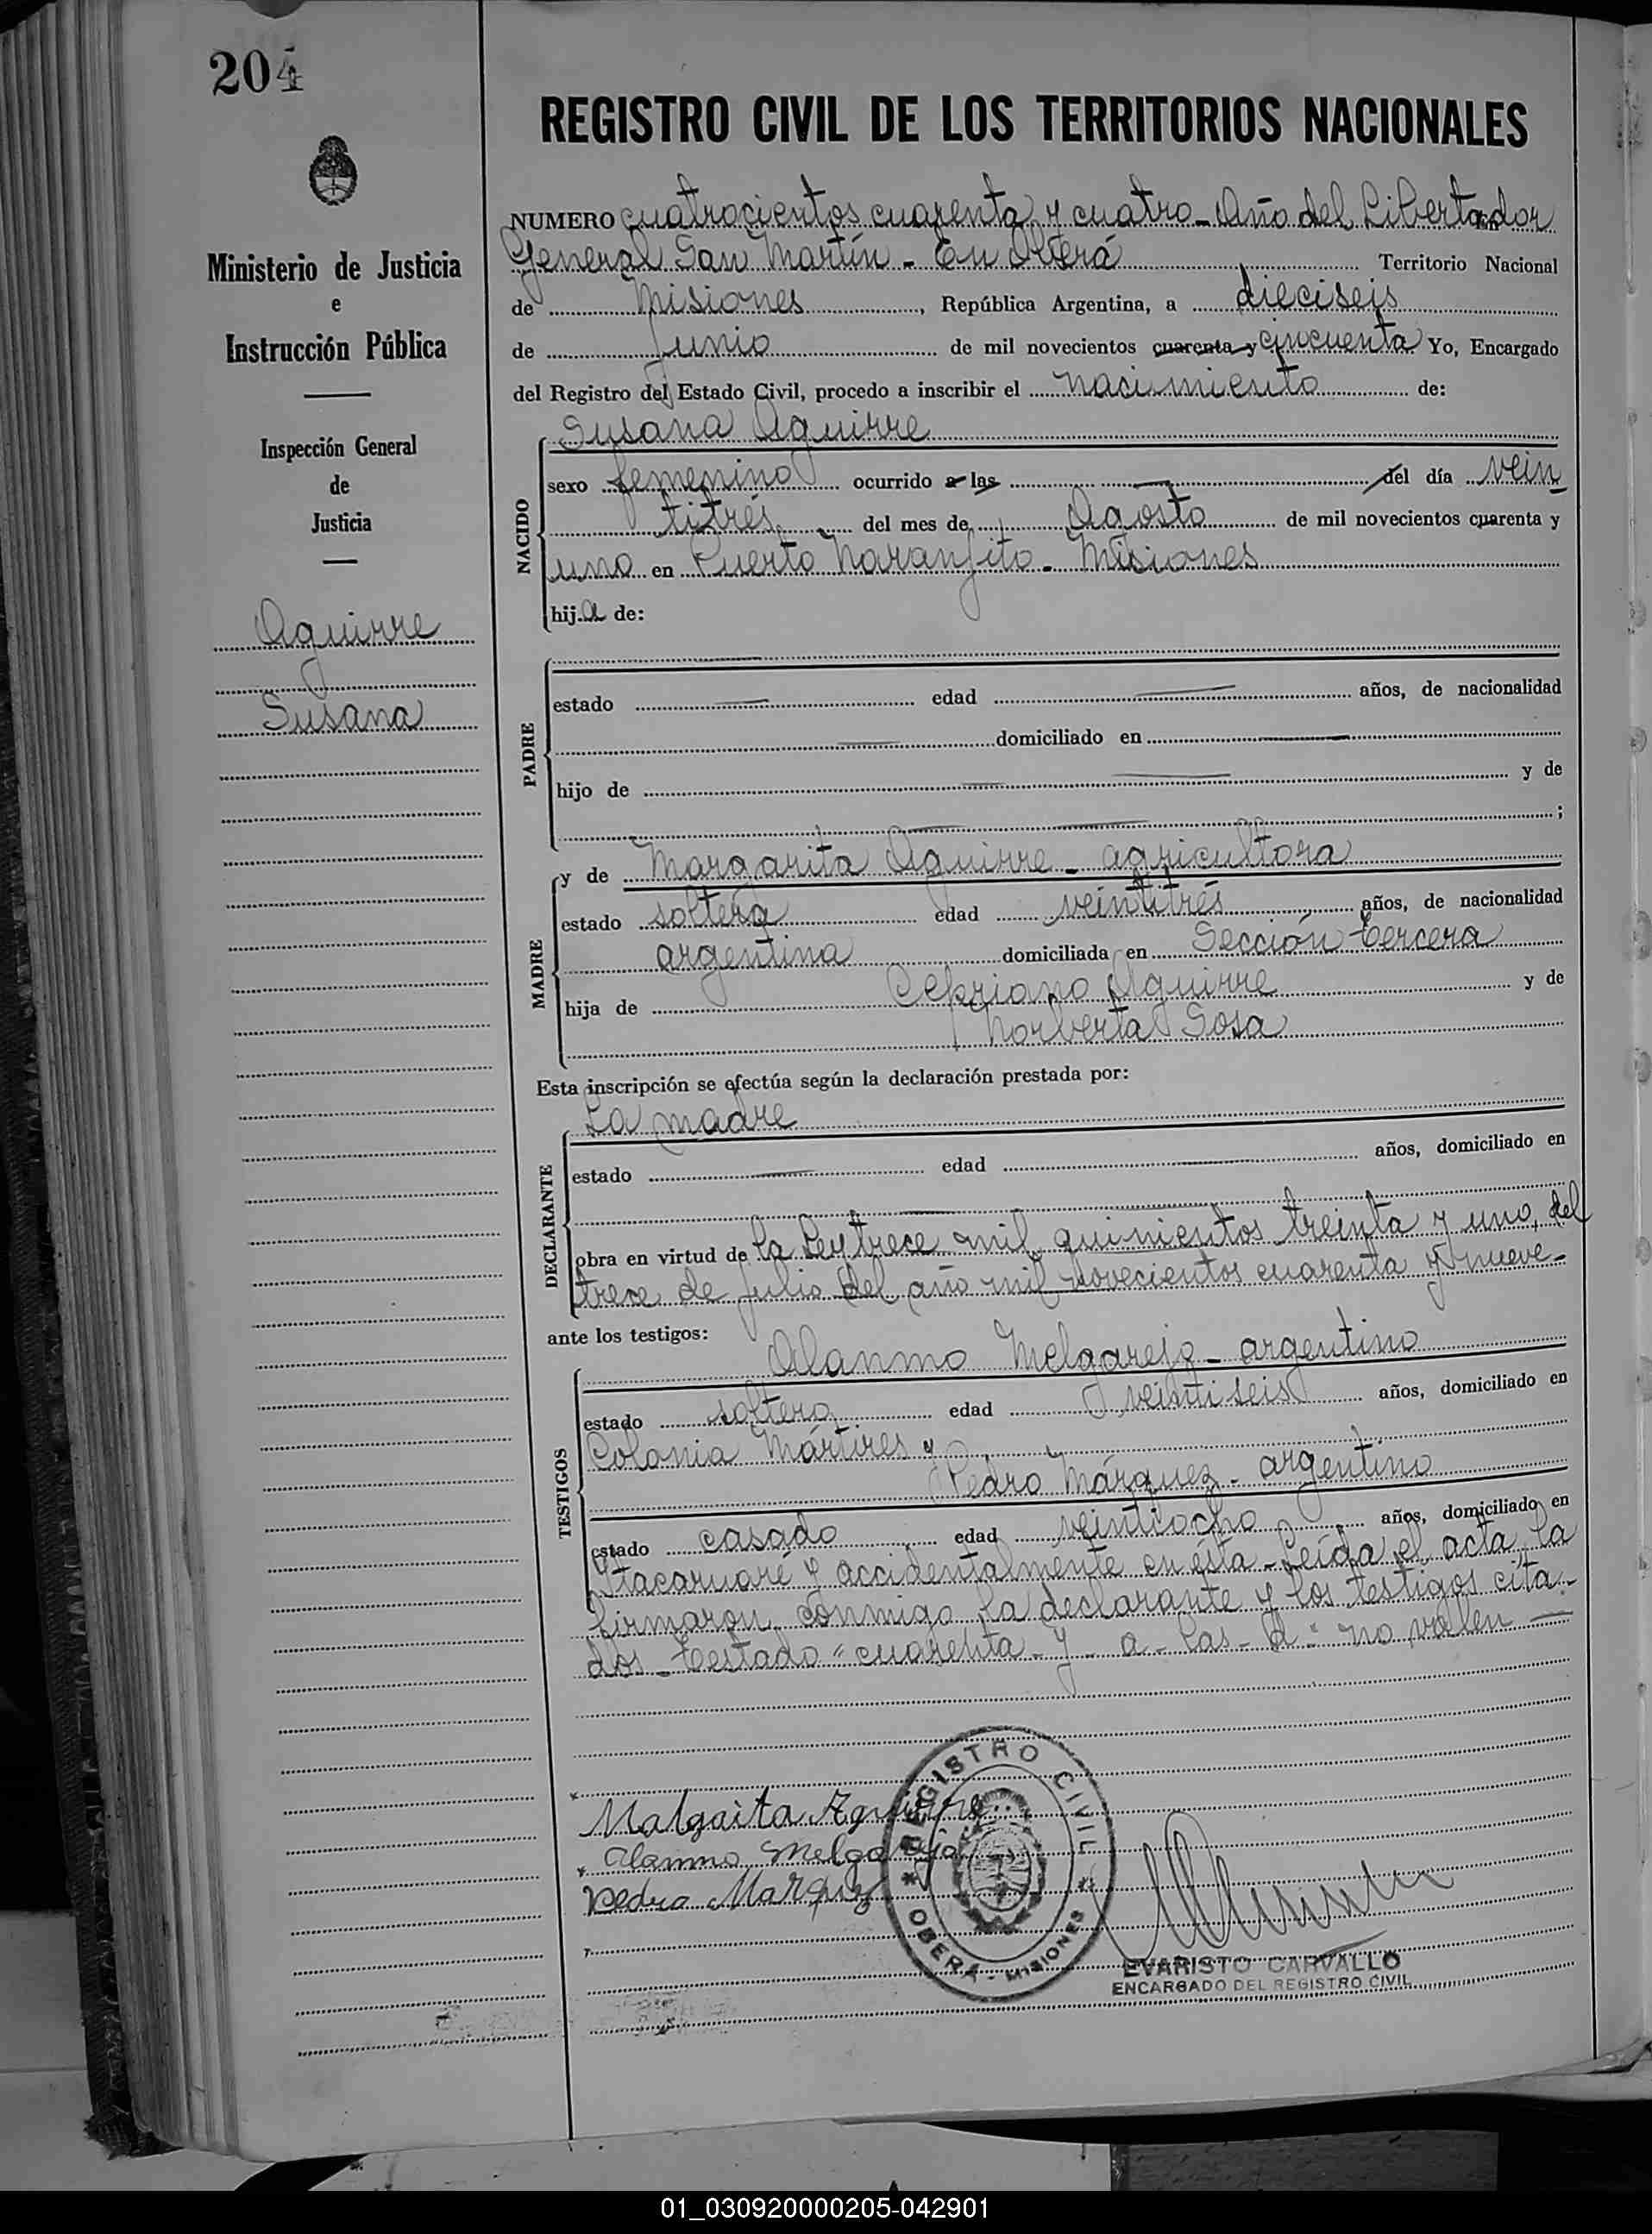 204
REGISTRO CIVIL DE LOS TERRITORIOS NACIONALES
Ministerio de Justicia
e
Instrucción Pública
Inspección General
de
Justicia
Aguirre
Susana
NUMERO cuatrocientos cuarenta y cuatro - Año del Libertador
General San Martín - En Oberá Territorio Nacional
de Misiones, República Argentina, a dieciseis
de Junio de mil novecientos cuarenta y cincuenta Yo, Encargado
del Registro del Estado Civil, procedo a inscribir el nacimiento de:
NACIDO
Susana Aguirre
sexo femenino ocurrido a las del día vein
titrés del mes de Agosto de mil novecientos cuarenta y
uno en Puerto Naranjito - Misiones
hija de:
PADRE
estado edad años, de nacionalidad
domiciliado en
hijo de y de
;
MADRE
y de Margarita Aguirre - agricultora
estado soltera edad veintitrés años, de nacionalidad
argentina domiciliada en Sección tercera
hija de Cepriano Aguirre y de
Norberta Sosa
Esta inscripción se efectúa según la declaración prestada por:
DECLARANTE
La madre
estado edad años, domiciliado en
obra en virtud de la Ley trece mil quinientos treinta y uno, del
trece de julio del año mil novecientos cuarenta y nueve -
ante los testigos:
TESTIGOS
Alanmo Melgarejo - argentino
estado soltero edad veintiseis años, domiciliado en
Colonia Mártires y
Pedro Márquez - argentino
estado casado edad veintiocho años, domiciliado en
Itacaruaré y accidentalmente en ésta - Leída el acta, la
firmaron conmigo la declarante y los testigos cita-
dos - Testado "cuarenta - y - a - las - d" no valen
Malgaita Aguirre
Alanmo Melgarejo
Pedro Marquez
REGISTRO CIVIL
OBERÁ - MISIONES
EVARISTO CARVALLO
ENCARGADO DEL REGISTRO CIVIL
01_030920000205-042901